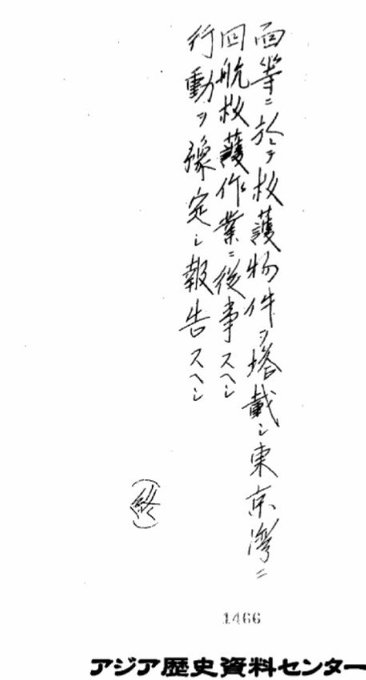 面等ニ於テ救護物件ヲ塔載シ東京湾ニ
回航救護作業ニ従事スヘシ
行動ヲ豫定シ報告スヘシ
(終)
1466
アジア歴史資料センター